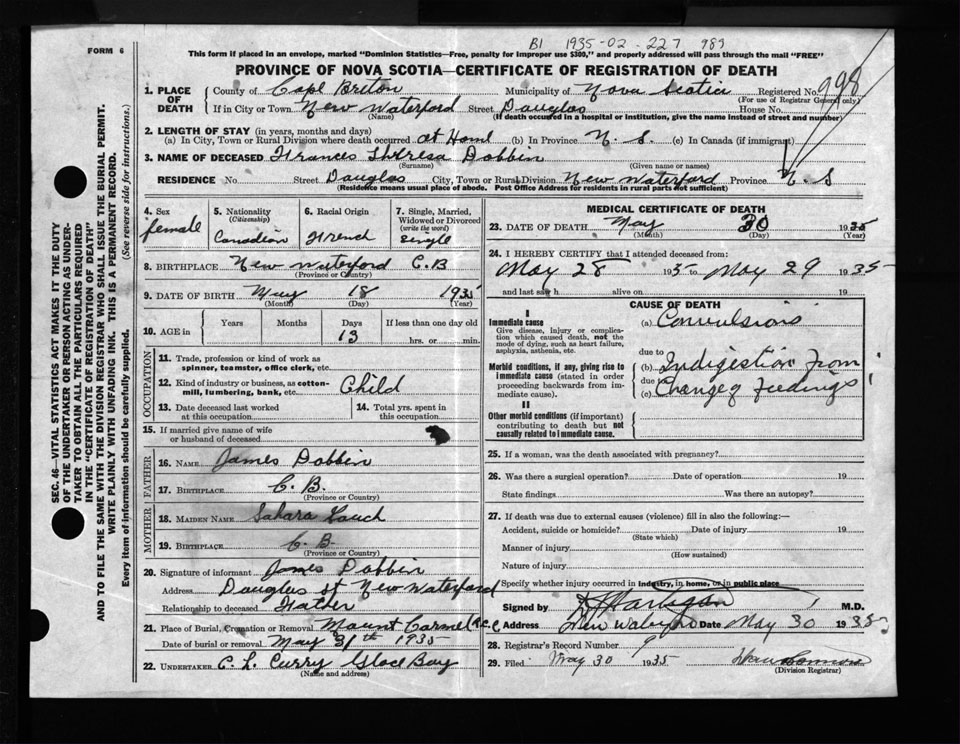 B1 1935-02-227 989
FORM 6
This form if placed in an envelope, marked "Dominion Statistics—Free, penalty for improper use $300," and properly addressed will pass through the mail "FREE"
PROVINCE OF NOVA SCOTIA—CERTIFICATE OF REGISTRATION OF DEATH
998
SEC. 46—VITAL STATISTICS ACT MAKES IT THE DUTY
OF THE UNDERTAKER OR PERSON ACTING AS UNDER-
TAKER TO OBTAIN ALL THE PARTICULARS REQUIRED
IN THE "CERTIFICATE OF REGISTRATION OF DEATH"
AND TO FILE THE SAME WITH THE DIVISION REGISTRAR WHO SHALL ISSUE THE BURIAL PERMIT.
WRITE PLAINLY WITH UNFADING INK. THIS IS A PERMANENT RECORD.
Every item of information should be carefully supplied. (See reverse side for instructions.)
1. PLACE OF DEATH
County of Cape Breton Municipality of Nova Scotia Registered No.
(For use of Registrar General only)
If in City or Town New Waterford Street Douglas House No.
(Name) (If death occurred in a hospital or institution, give the name instead of street and number)
2. LENGTH OF STAY (in years, months and days)
(a) In City, Town or Rural Division where death occurred at Home (b) In Province N. S. (c) In Canada (if immigrant)
3. NAME OF DECEASED Frances Theresa Dobbin
(Surname) (Given name or names)
RESIDENCE No Street Douglas City, Town or Rural Division New Waterford Province N. S
(Residence means usual place of abode. Post Office Address for residents in rural parts not sufficient)
4. Sex female
5. Nationality (Citizenship) Canadian
6. Racial Origin French
7. Single, Married, Widowed or Divorced (write the word) Single
8. BIRTHPLACE New Waterford C.B
(Province or Country)
9. DATE OF BIRTH May 18 1935
(Month) (Day) (Year)
10. AGE in Years Months Days If less than one day old
13 hrs. or min.
OCCUPATION
11. Trade, profession or kind of work as
spinner, teamster, office clerk, etc.
12. Kind of industry or business, as cotton-
mill, lumbering, bank, etc. Child
13. Date deceased last worked
at this occupation
14. Total yrs. spent in
this occupation
15. If married give name of wife
or husband of deceased
FATHER
16. Name James Dobbin
17. Birthplace C. B.
(Province or Country)
MOTHER
18. Maiden Name
19. Birthplace C. B.
(Province or Country)
20. Signature of informant James Dobbin
Address Douglas st New Waterford
Relationship to deceased Father
21. Place of Burial, Cremation or Removal Mount Carmel
Date of burial or removal May 31th 1935
22. Undertaker C. L. Curry Glace Bay
(Name and address)
MEDICAL CERTIFICATE OF DEATH
23. DATE OF DEATH May 30 1935
(Month) (Day) (Year)
24. I HEREBY CERTIFY that I attended deceased from:
May 28 1935 to May 29 1935
and last saw h alive on 19
CAUSE OF DEATH
I
Immediate cause
Give disease, injury or complica-
tion which caused death, not the
mode of dying, such as heart failure,
asphyxia, asthenia, etc.
(a) Convulsions
due to
Morbid conditions, if any, giving rise to
immediate cause (stated in order
proceeding backwards from im-
mediate cause).
(b) Indigestion from
due to
(c) Change of Feedings
II
Other morbid conditions (if important)
contributing to death but not
causally related to immediate cause.
25. If a woman, was the death associated with pregnancy?
26. Was there a surgical operation? Date of operation 19
State findings Was there an autopsy?
27. If death was due to external causes (violence) fill in also the following:—
Accident, suicide or homicide? Date of injury 19
(State which)
Manner of injury
(How sustained)
Nature of injury
Specify whether injury occurred in industry, in home, or in public place
Signed by Hartigan M.D.
Address New Waterford Date May 30 1935
28. Registrar's Record Number 9
29. Filed May 30 1935
(Division Registrar)